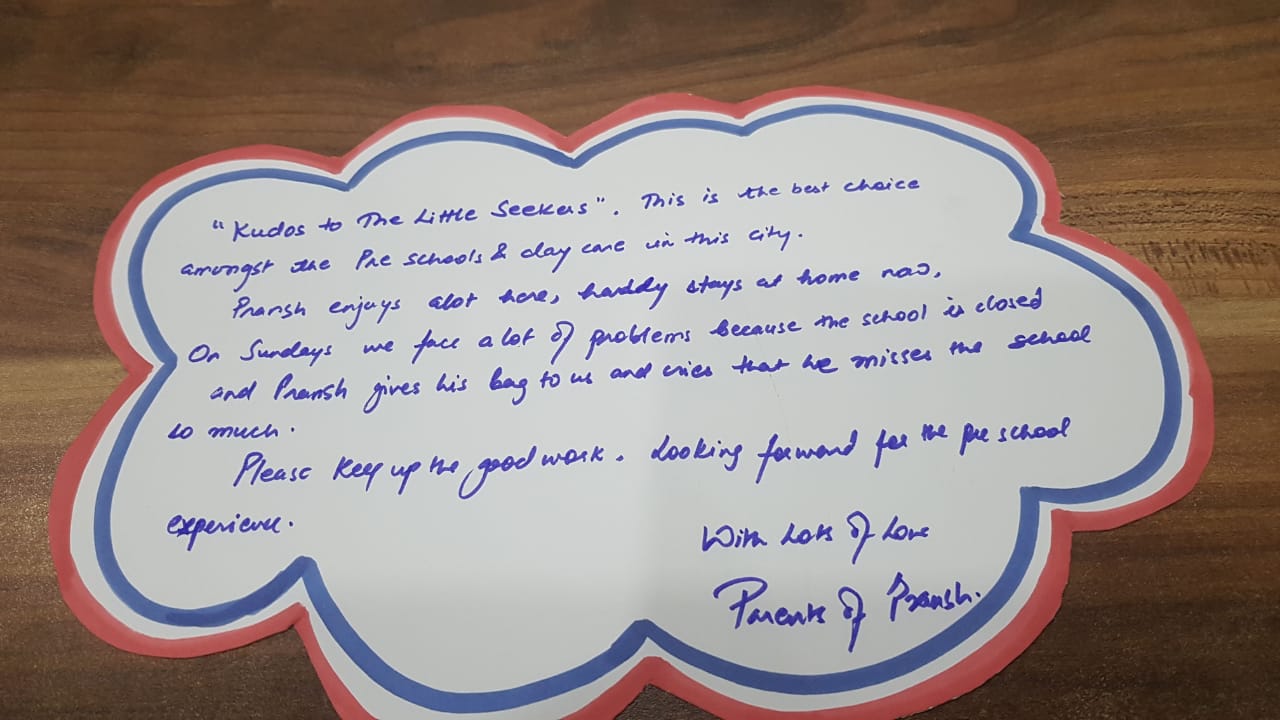 "Kudos to The Little Seekers". This is the best choice
amongst the Pre schools & day care in this city.
Pransh enjoys alot here, hardly stays at home now,
On Sundays we face a lot of problems because the school is closed
and Pransh gives his bag to us and cries that he misses the school
so much.
Please Keep up the good work. Looking forward for the pre school
experience.
With Lots of Love
Parents of Pransh.